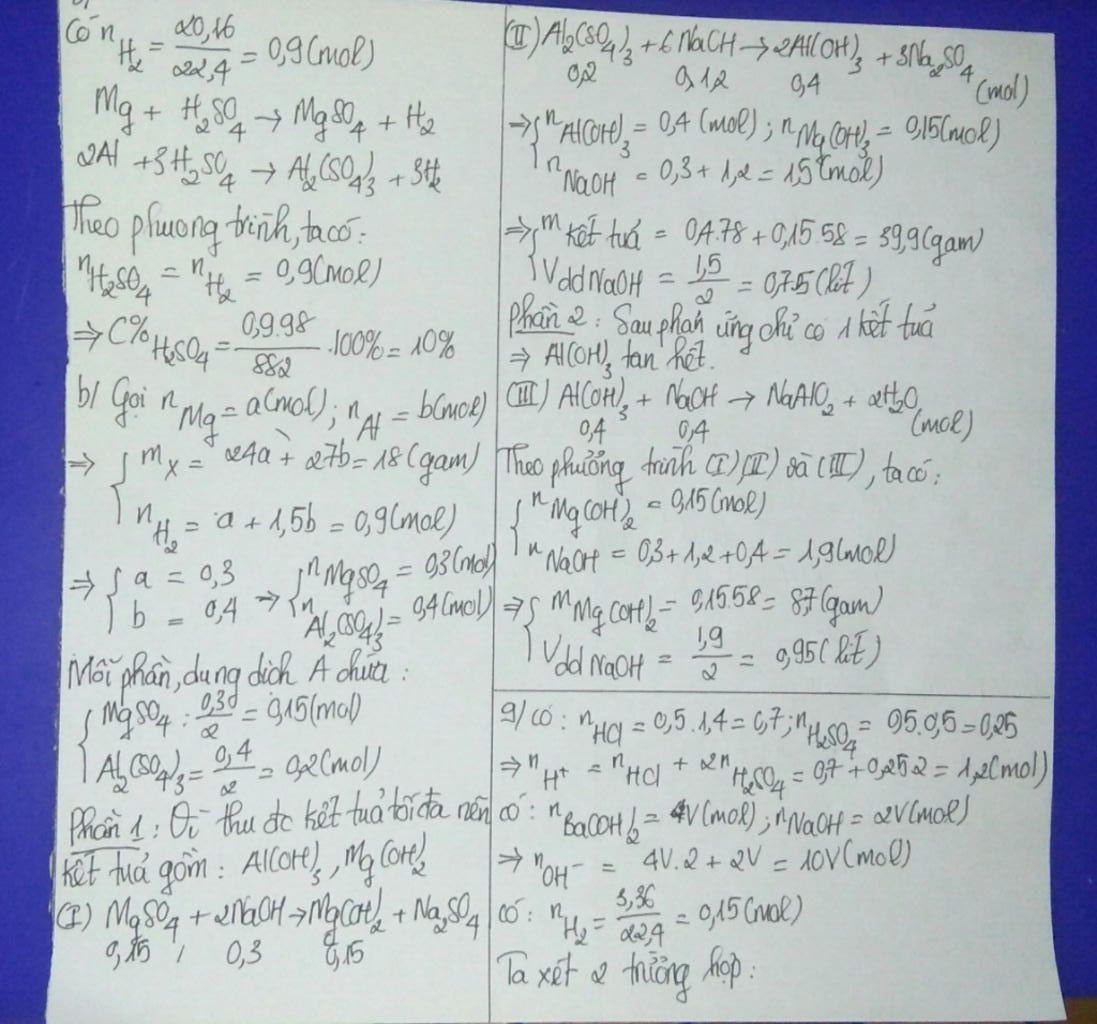 Có n_H₂ = 20,16/22,4 = 0,9 (mol)
Mg + H₂SO₄ → MgSO₄ + H₂
2Al + 3H₂SO₄ → Al₂(SO₄)₃ + 3H₂
Theo phương trình, ta có:
n_H₂SO₄ = n_H₂ = 0,9 (mol)
⇒ C%_H₂SO₄ = 0,9.98/882 .100% = 10%
b/ Gọi n_Mg = a(mol); n_Al = b(mol)
⇒ { m_X = 24a + 27b = 18 (gam)
n_H₂ = a + 1,5b = 0,9 (mol)
⇒ { a = 0,3 → { n_MgSO₄ = 0,3 (mol)
b = 0,4 n_Al₂(SO₄)₃ = 0,4 (mol)
Mỗi phần, dung dịch A chứa:
{ MgSO₄ : 0,30/2 = 0,15 (mol)
Al₂(SO₄)₃ = 0,4/2 = 0,2 (mol)
Phần 1: Vì thu đc kết tuả tối đa nên
kết tuả gồm: Al(OH)₃, Mg(OH)₂
(I) MgSO₄ + 2NaOH → Mg(OH)₂ + Na₂SO₄
0,15 , 0,3 0,15
(II) Al₂(SO₄)₃ + 6NaOH → 2Al(OH)₃ + 3Na₂SO₄
0,2 0,1,2 0,4 (mol)
⇒ { n_Al(OH)₃ = 0,4 (mol); n_Mg(OH)₃ = 0,15 (mol)
n_NaOH = 0,3 + 1,2 = 1,5 (mol)
⇒ { m kết tuả = 0,4.78 + 0,15.58 = 39,9 (gam)
V dd NaOH = 1,5/2 = 0,75 (lít)
Phần 2: Sau phản ứng chỉ có 1 kết tuả
⇒ Al(OH)₃ tan hết.
(III) Al(OH)₃ + NaOH → NaAlO₂ + 2H₂O
0,4 0,4 (mol)
Theo phương trình (I), (II) và (III), ta có:
{ n_Mg(OH)₂ = 0,15 (mol)
n_NaOH = 0,3 + 1,2 + 0,4 = 1,9 (mol)
⇒ { m_Mg(OH)₂ = 0,15.58 = 8,7 (gam)
V dd NaOH = 1,9/2 = 0,95 (lít)
9/ Có: n_HCl = 0,5.1,4 = 0,7; n_H₂SO₄ = 0,5.0,5 = 0,25
⇒ n_H⁺ = n_HCl + 2n_H₂SO₄ = 0,7 + 0,25.2 = 1,2 (mol)
Có: n_Ba(OH)₂ = 4V (mol); n_NaOH = 2V (mol)
⇒ n_OH⁻ = 4V.2 + 2V = 10V (mol)
Có: n_H₂ = 3,36/22,4 = 0,15 (mol)
Ta xét 2 trường hợp: